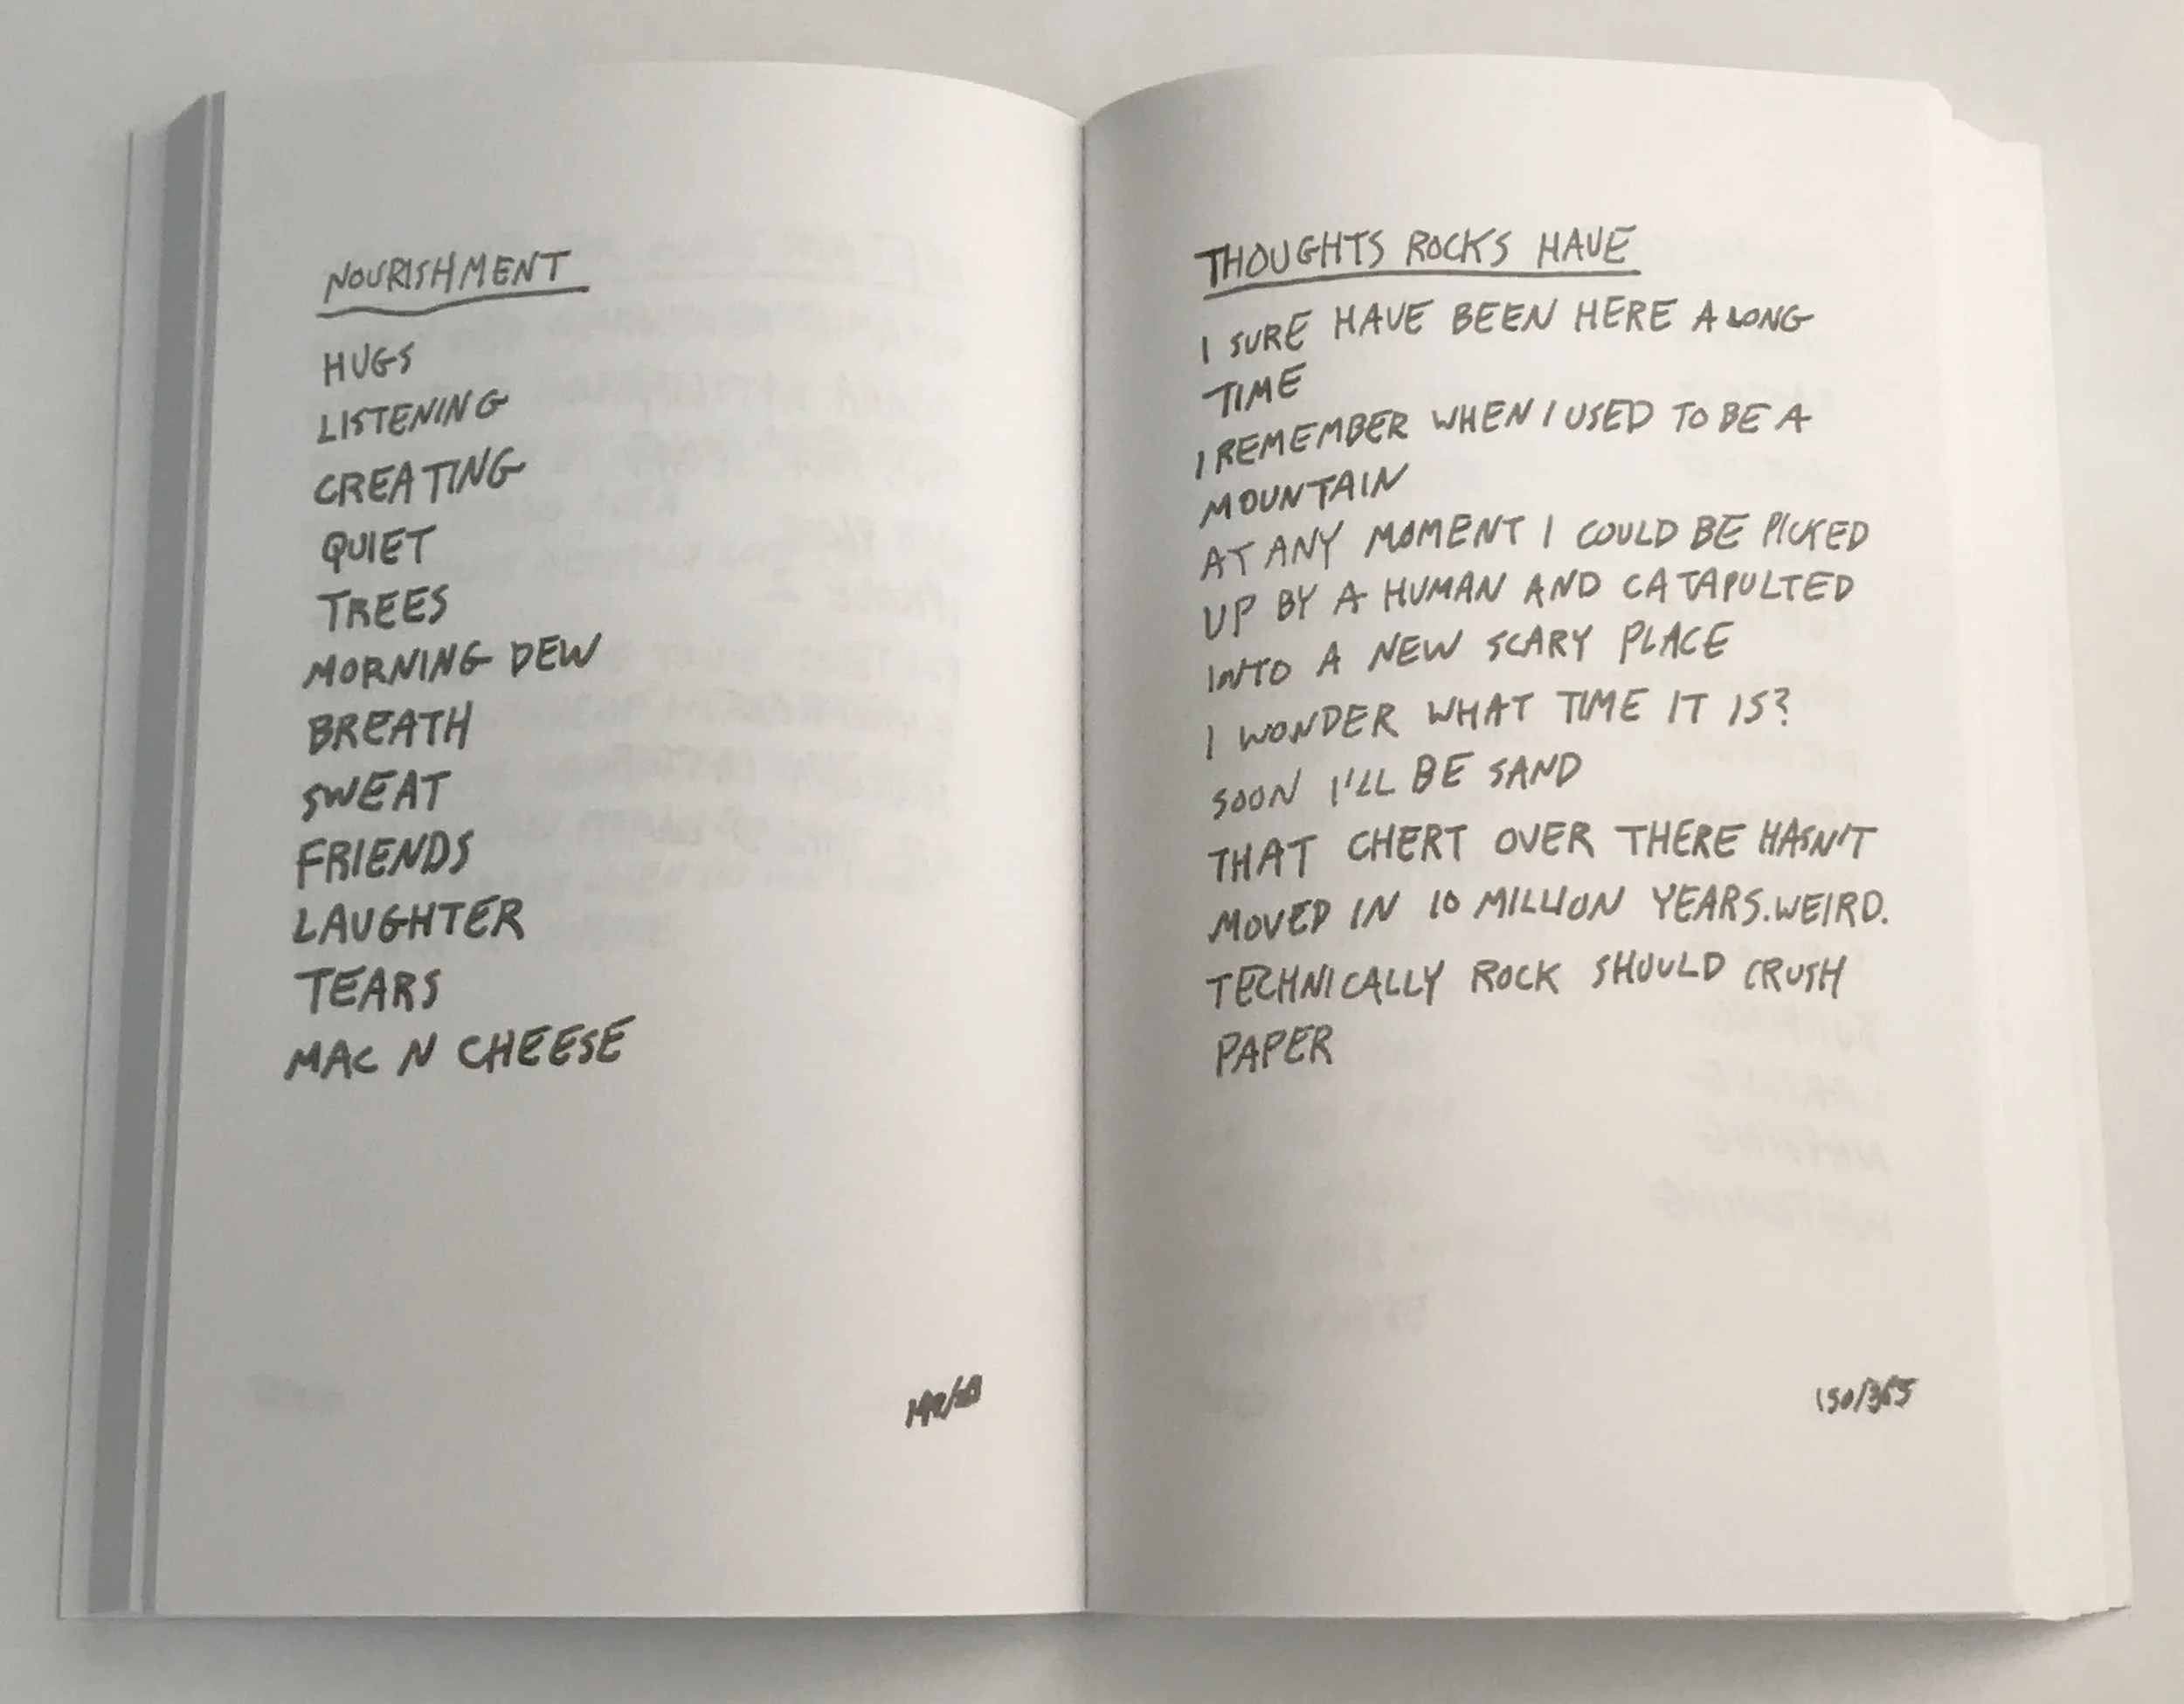 NOURISHMENT
HUGS
LISTENING
CREATING
QUIET
TREES
MORNING DEW
BREATH
SWEAT
FRIENDS
LAUGHTER
TEARS
MAC N CHEESE
THOUGHTS ROCKS HAVE
I SURE HAVE BEEN HERE A LONG
TIME
I REMEMBER WHEN I USED TO BE A
MOUNTAIN
AT ANY MOMENT I COULD BE PICKED
UP BY A HUMAN AND CATAPULTED
INTO A NEW SCARY PLACE
I WONDER WHAT TIME IT IS?
SOON I'LL BE SAND
THAT CHERT OVER THERE HASN'T
MOVED IN 10 MILLION YEARS. WEIRD.
TECHNICALLY ROCK SHOULD CRUSH
PAPER
150/365